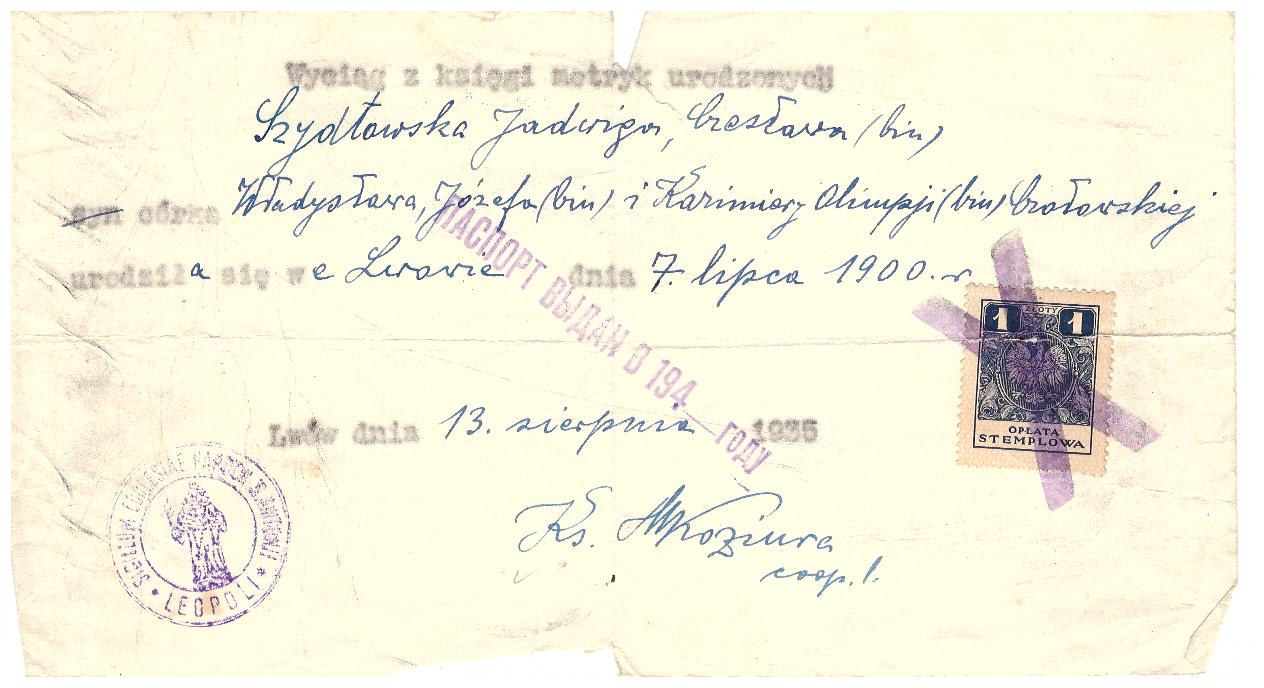 Wyciąg z księgi metryk urodzonych
Szydłowska Jadwiga, Czesława (bin)
syn córka Władysława, Józefa (bin) i Kazimiery Olimpji (bin) Czołowskiej
urodziła się we Lwowie dnia 7. lipca 1900. r.
ПАСПОРТ ВЫДАН В 194 ГОДУ
1 ZŁOTY 1
OPŁATA
STEMPLOWA
Lwów dnia 13. sierpnia 1935
Ks. Koziura
coop. l.
SIGILLUM ECCLESIAE PAROCH. S. ANTONII
* LEOPOLI *